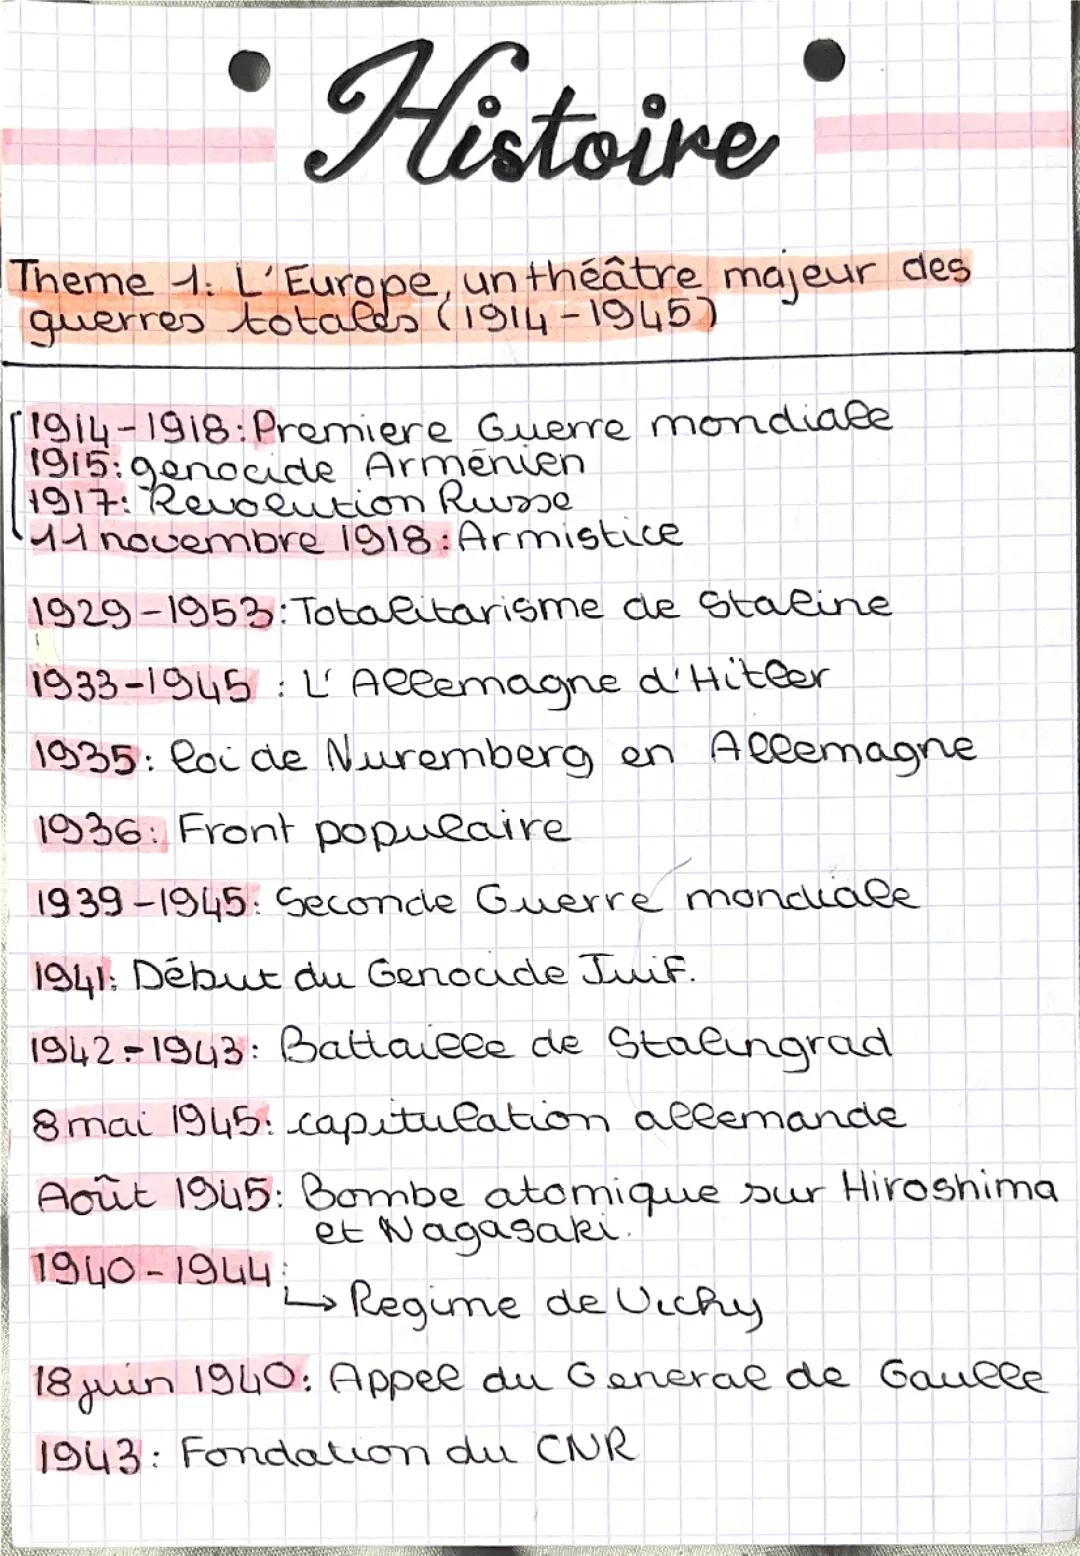 Histoire
Theme 1: L'Europe, un théâtre majeur des
guerres totales (1914-1945)
1914-1918: Premiere Guerre mondiale
1915: genocide Arménien
1917: Revolution Russe
11 novembre 1918: Armistice
1929-1953: Totalitarisme de Staline
1933-1945 : L'Allemagne d'Hitler
1935: loi de Nuremberg en Allemagne
1936: Front populaire
1939-1945: Seconde Guerre mondiale
1941: Début du Genocide Juif.
1942-1943: Battaille de Stalingrad
8 mai 1945: capitulation allemande
Août 1945: Bombe atomique sur Hiroshima
et Nagasaki.
1940-1944:
↳ Regime de Vichy
18 juin 1940: Appel du General de Gaulle
1943: Fondation du CNR